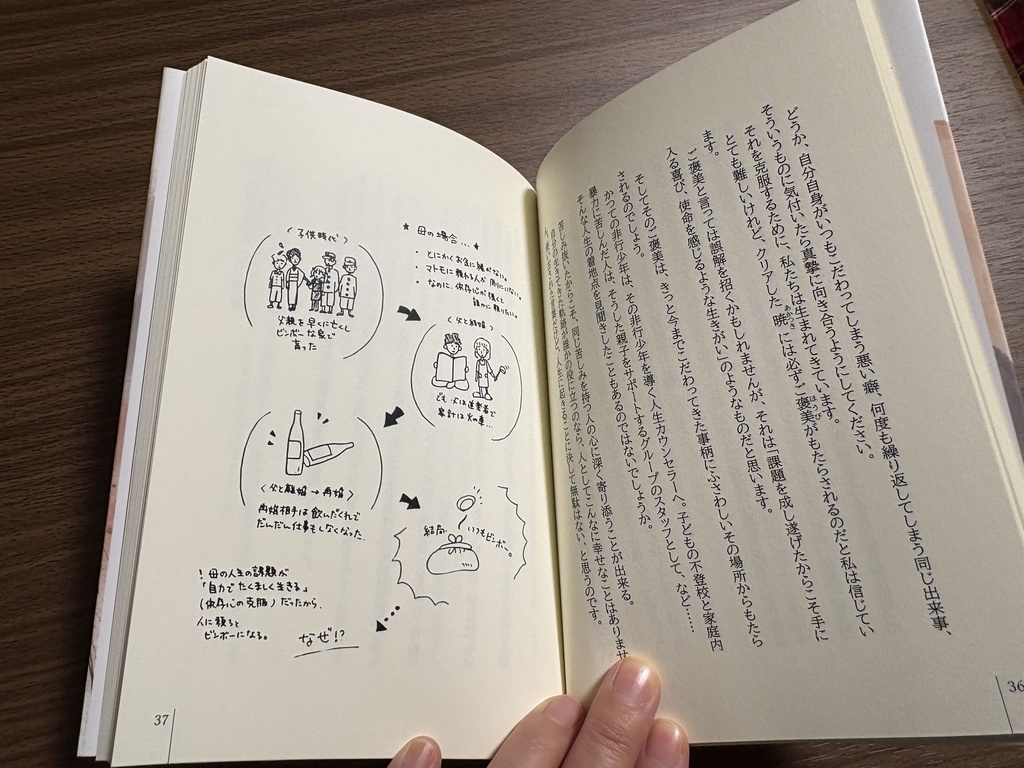 どうか、自分自身がいつもこだわってしまう悪い癖、何度も繰り返してしまう同じ出来事、
そういうものに気付いたら真摯に向き合うようにしてください。
それを克服するために、私たちは生まれてきています。
とても難しいけれど、クリアした暁には必ずご褒美がもたらされるのだと私は信じてい
ます。
ご褒美と言っては誤解を招くかもしれませんが、それは「課題を成し遂げたからこそ手に
入る喜び、使命を感じるような生きがい」のようなものだと思います。
そしてそのご褒美は、きっと今までこだわってきた事柄にふさわしいその場所からもたら
されるのでしょう。
かつての非行少年は、その非行少年を導く人生カウンセラーへ。子どもの不登校と家庭内
暴力に苦しんだ人は、そうした親子をサポートするグループのスタッフとして、など……
そんな人生の着地点を見聞きしたこともあるのではないでしょうか。
苦しみ抜いたからこそ、同じ苦しみを持つ人の心に深く寄り添うことが出来る。
自分の歩いてきた軌跡が誰かの役に立つのなら、人としてこんなに幸せなことはありませ
人生に起きることに決して無駄はない、と思うのです。
36
★ 母の場合… ★
・とにかくお金に縁がない。
・マトモに頼れる人が周りにいない。
・なのに、依存心が強くて
誰かに頼りたい。
〈子供時代〉
父親を早くに亡くし
ビンボーな家で
育った
〈父と結婚〉
でも父は道楽者で
家計は火の車…
〈父と離婚→再婚〉
再婚相手は飲んだくれで
だんだん仕事もしなくなった.
結局、いつもビンボー。
! 母の人生の課題が
「自力でたくましく生きる」
(依存心の克服)だったから、
人に頼ると
ビンボーになる。
なぜ!?
37